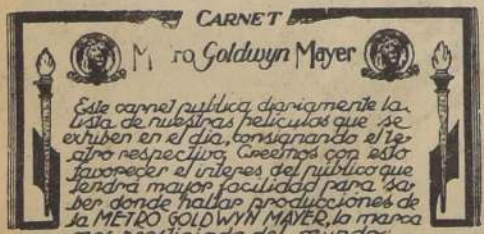 CARNET
M ro Goldwyn Mayer
Este carnet publica diariamente la
lista de nuestras peliculas que se
exhiben en el dia, consignando el te-
atro respectivo. Creemos con esto
favorecer el interes del publico que
tendrá mayor facilidad para sa-
ber donde hallar producciones de
la METRO GOLDWYN MAYER, la marca
mas prestigiada del mundo.